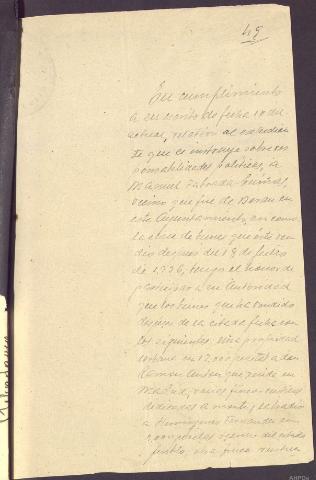 49
En cumplimiento
a su escrito de fecha 10 del
actual, relativo al expedien
te que se instruye sobre res
ponsabilidades políticas, a
Manuel Taboada
vecino que fue de
este Ayuntamiento, así como
la clase de bienes que éste ven
dió después del 18 de
de 1.936, tengo el honor de
participar a su Autoridad
que los bienes que ha vendido
después de la citada fecha son
los siguientes: una propiedad
en 12.000 pesetas a don
Ramón que reside en
Madrid, varias fincas rústicas
dedicadas a monte,
a Hermógenes Fernández en
pesetas vecino del citado
pueblo, una finca rústica
AHPOu